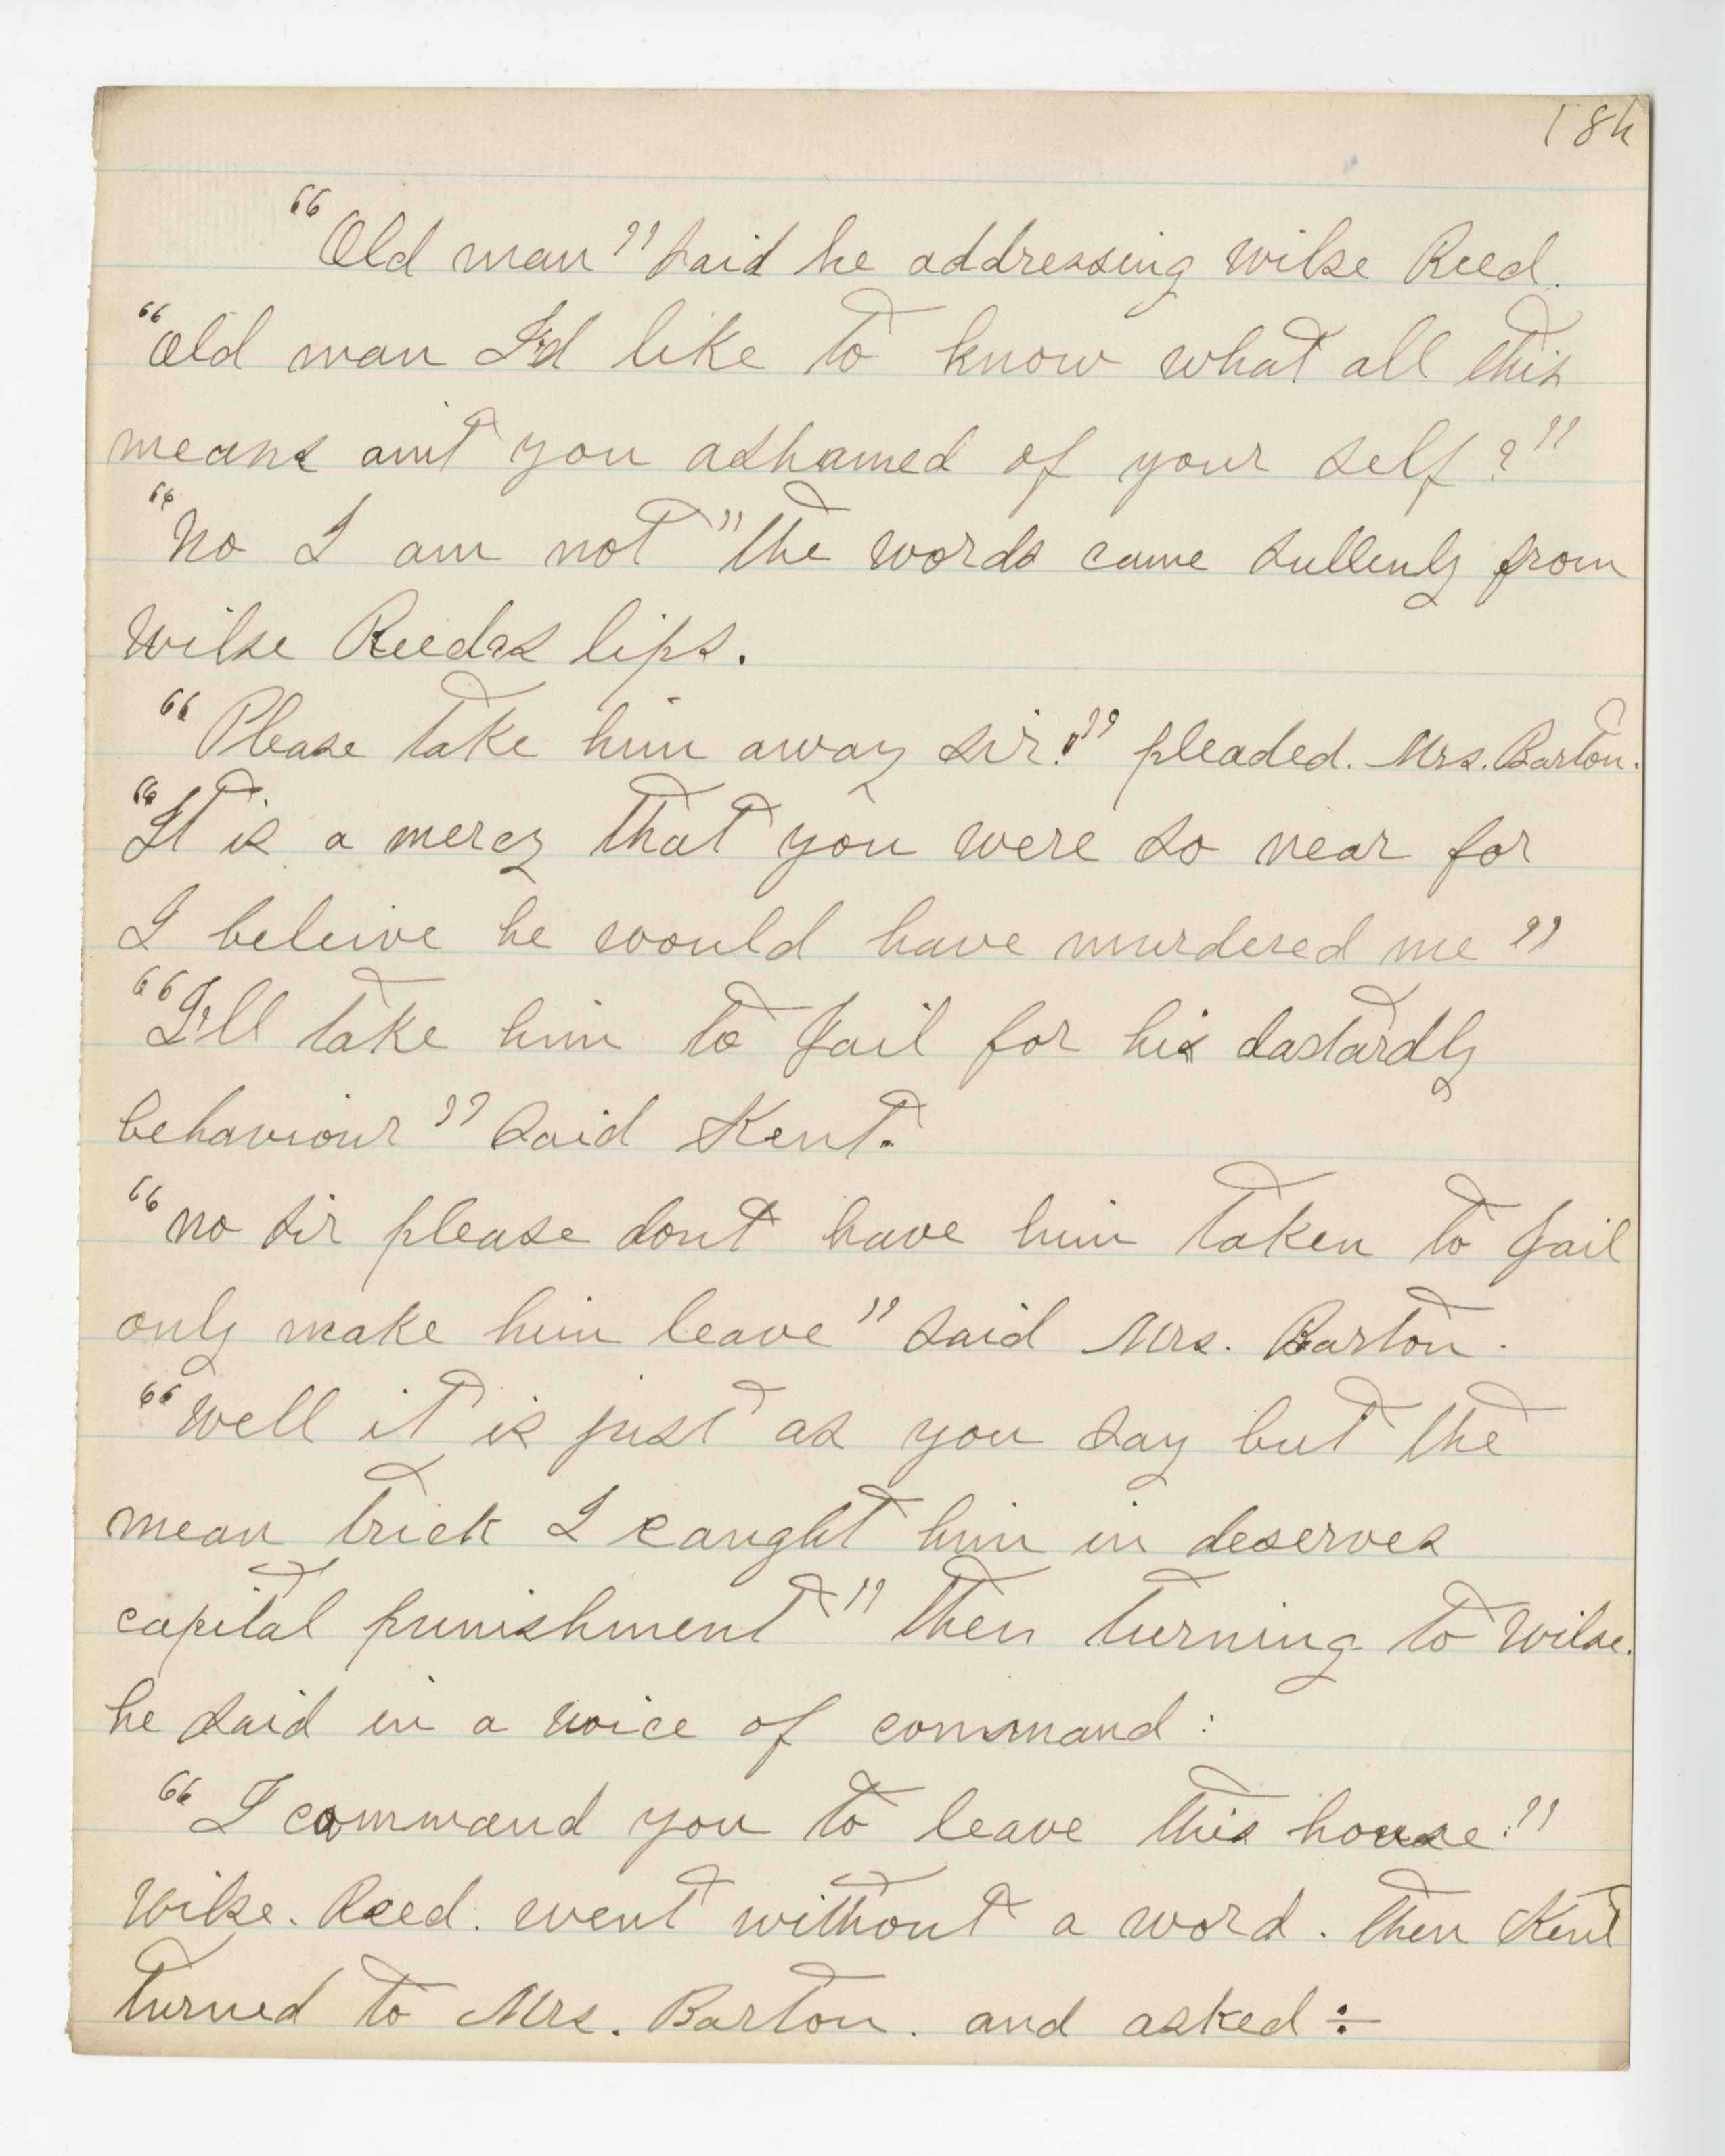 184
"Old man" said he addressing Wilse Reed.
"Old man I'd like to know what all this
means aint you ashamed of your self?"
"No I am not" the words came sullenly from
Wilse Reed's lips.
"Please take him away sir!" pleaded. Mrs. Barton.
"It is a mercy that you were so near for
I beleive he would have murdered me"
"I'll take him to Jail for his dastardly
behaviour" said Kent.
"no sir please dont have him taken to Jail
only make him leave" said Mrs. Barton.
"well it is just as you say but the
mean trick I caught him in deserves
capital punishment" then turning to Wilse.
he said in a voice of command:
"I command you to leave this house!"
Wilse. Reed. went without a word. then Kent
turned to Mrs. Barton. and asked:-